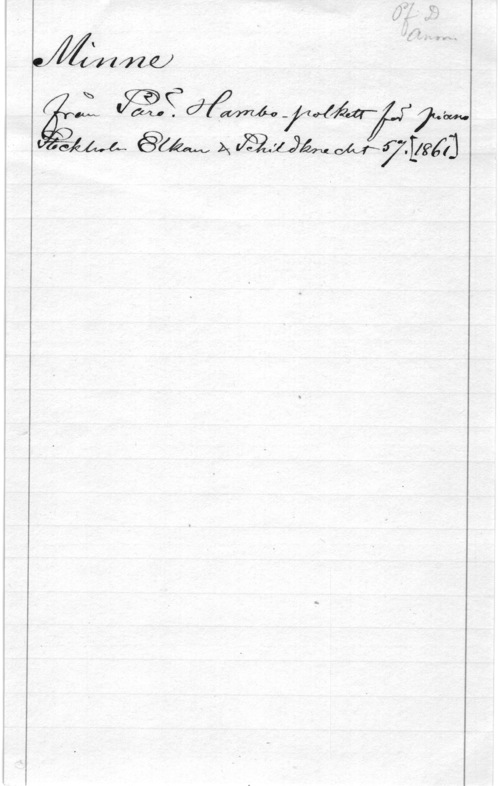 Pf. D
Anon.
Minne
från Särö. Hambo-polkett för piano
Stockholm Elkan & Schildknecht 57. [1861]